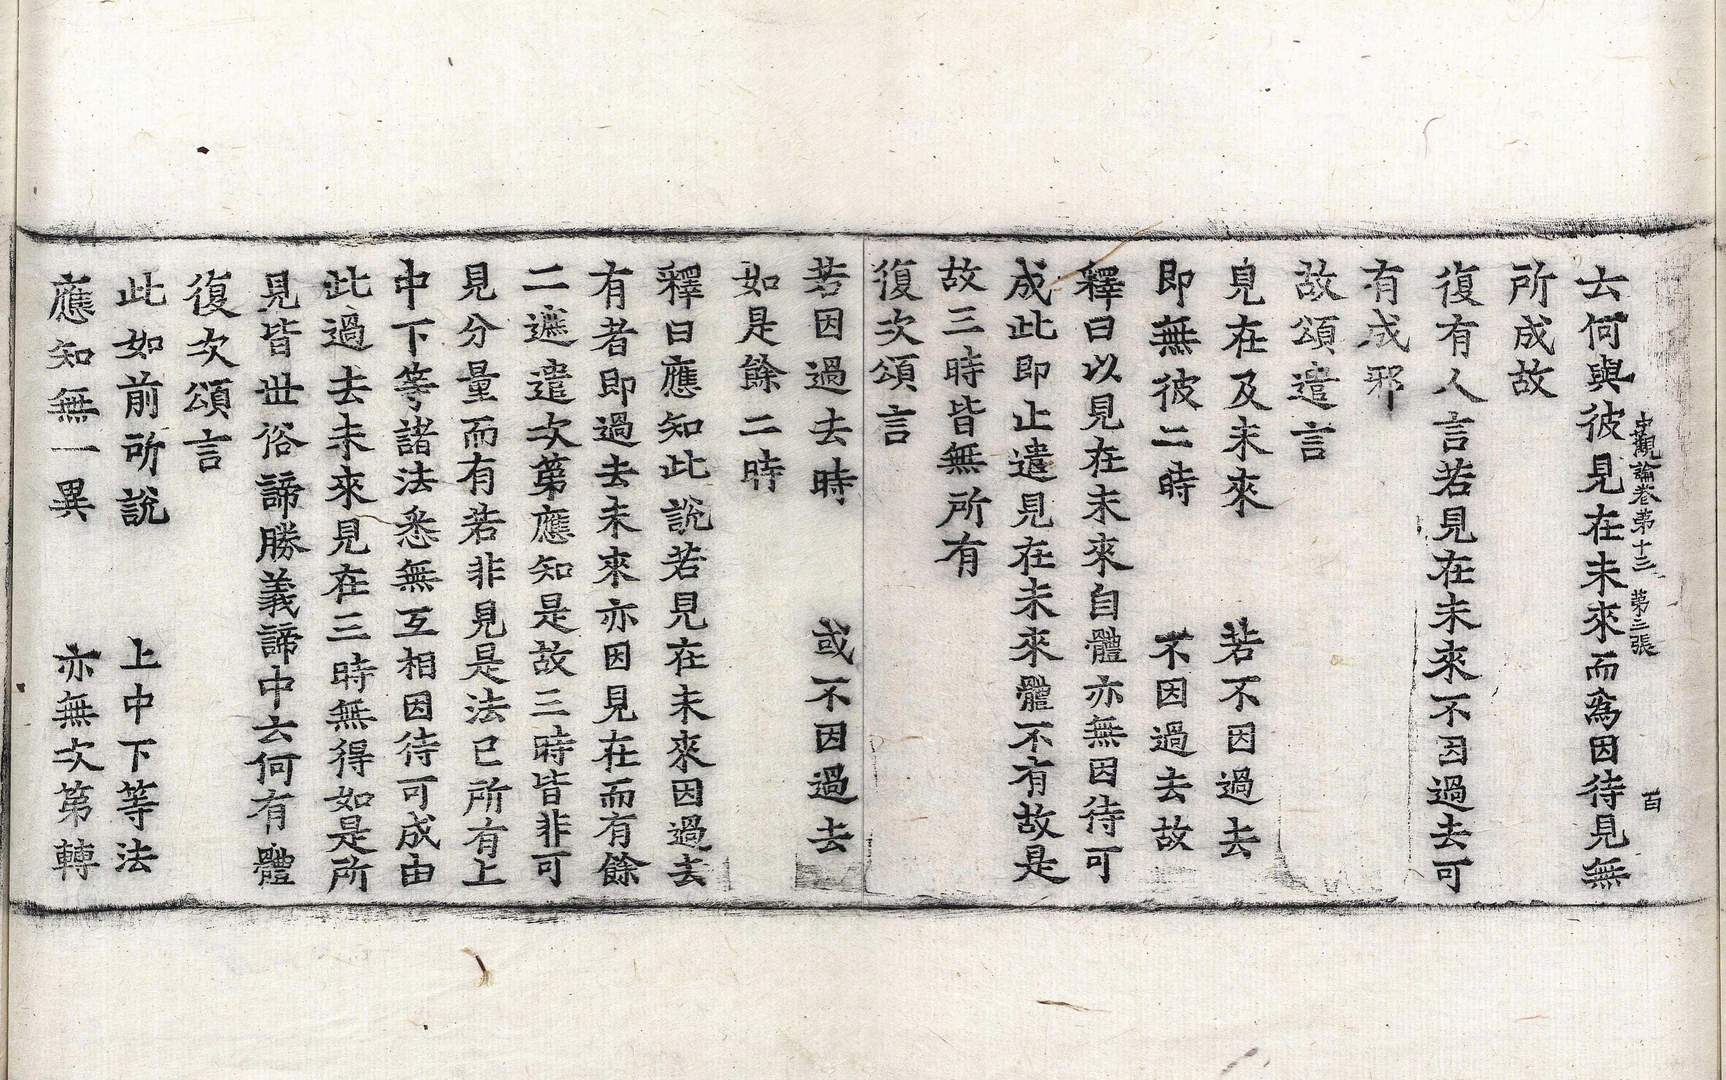 中觀論卷第十三 第三張 百
云何與彼見在未來而爲因待見無
所成故
復有人言若見在未來不因過去可
有成邪
故頌遣言
見在及未來 若不因過去
即無彼二時 不因過去故
釋曰以見在未來自體亦無因待可
成此即止遣見在未來體不有故是
故三時皆無所有
復次頌言
若因過去時 或不因過去
如是餘二時
釋曰應知此說若見在未來因過去
有者即過去未來亦因見在而有餘
二遮遣次第應知是故三時皆非可
見分量而有若非見是法已所有上
中下等諸法悉無互相因待可成由
此過去未來見在三時無得如是所
見皆世俗諦勝義諦中云何有體
復次頌言
此如前所說 上中下等法
應知無一異 亦無次第轉